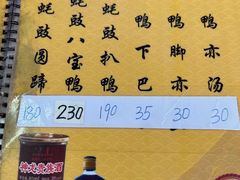 蚝豉圆蹄
蚝豉八宝鸭
蚝豉扒鸭
鸭下巴
鸭脚亦
鸭亦汤
180 230 190 35 30 30
贵族酒